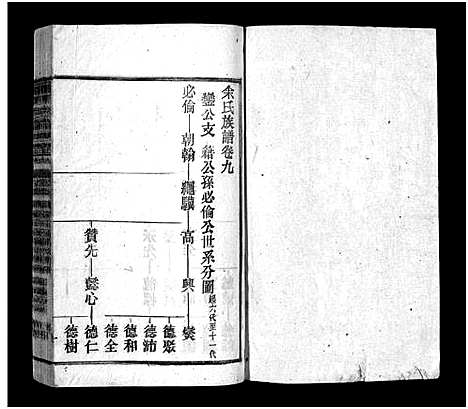 余氏族譜卷九
鑾公支 猪公孫必倫公世系分圖 經六代至十一代
必倫—朝翰—繩驥—高—興—爕
德聚
德沛
德和
德全
贊先—懿心—德仁
德樹